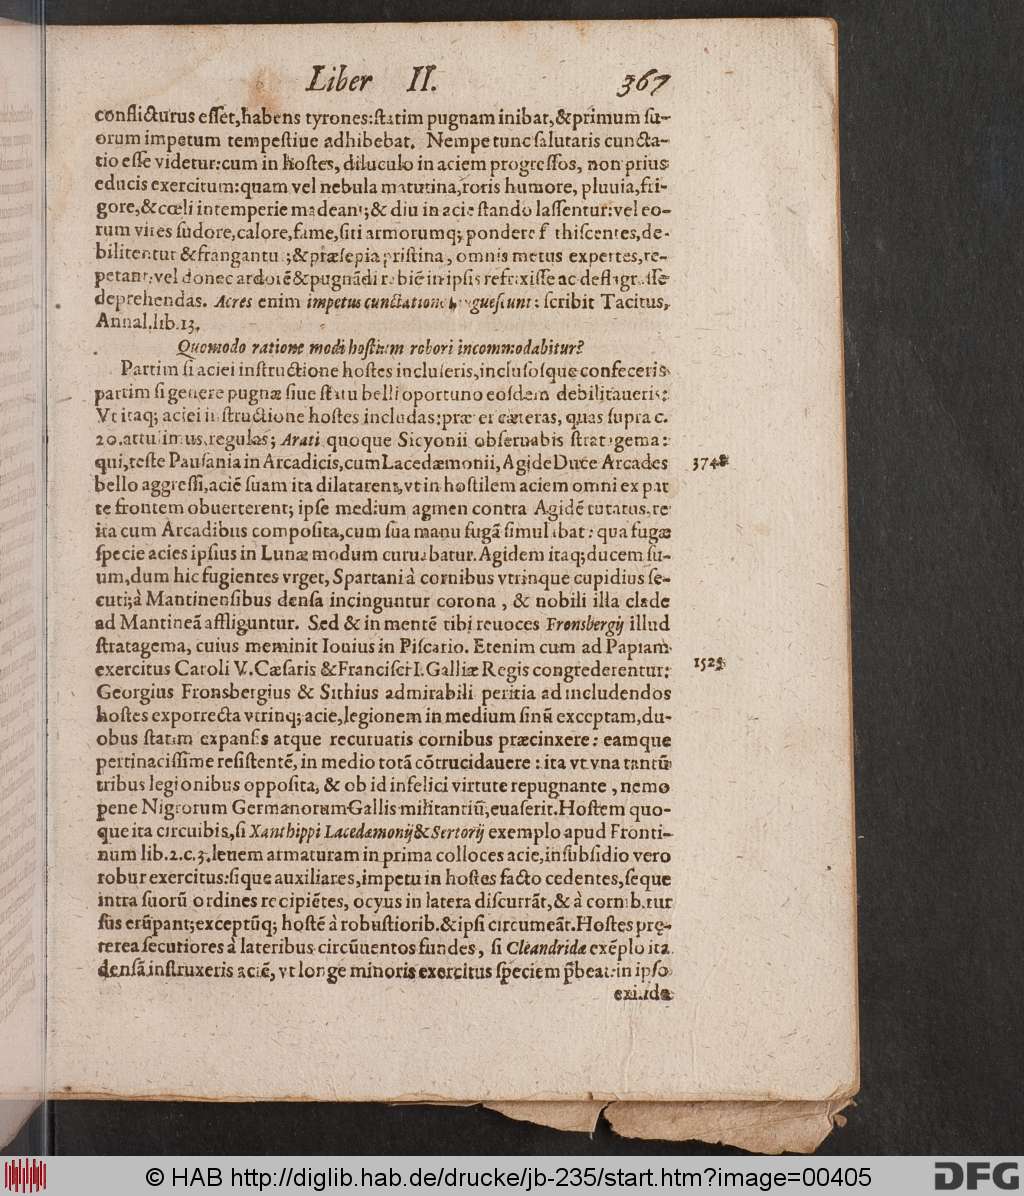 Liber II. 367
conflicturus eſſet, habens tyrones: ſtatim pugnam inibat, & primum ſu-
orum impetum tempeſtiue adhibebat. Nempe tunc ſalutaris cuncta-
tio eſſe videtur: cum in hoſtes, diluculo in aciem progreſſos, non prius
educis exercitum: quam vel nebula matutina, roris humore, pluuia, fri-
gore, & cœli intemperie madeant; & diu in acie ſtando laſſentur: vel eo-
rum vires ſudore, calore, fame, ſiti armorumq; pondere fathiſcentes, de-
bilitentur & frangantur; & præſepia priſtina, omnis metus expertes, re-
petant: vel donec ardorē & pugnādi rabiē in ipſis refrixiſſe ac deflagraſſe
deprehendas. Acres enim impetus cunctatione langueſcunt: ſcribit Tacitus,
Annal. lib. 13.
Quomodo ratione modi hoſtium robori incommodabitur?
Partim ſi aciei inſtructione hoſtes incluſeris, incluſoſque confeceris
partim ſi genere pugnæ ſiue ſtatu belli oportuno eoſdem debilitaueris:
Vt itaq; aciei inſtructione hoſtes includas: præter cæteras, quas ſupra c.
20. attulimus, regulas; Arati quoque Sicyonii obſeruabis ſtratagema:
qui, teſte Pauſania in Arcadicis, cum Lacedæmonii, Agide Duce Arcades 3748
bello aggreſſi, aciē ſuam ita dilatarent, vt in hoſtilem aciem omni ex par
te frontem obuerterent; ipſe medium agmen contra Agidē tutatus, re
ita cum Arcadibus compoſita, cum ſua manu fugā ſimulabat: qua fugæ
ſpecie acies ipſius in Lunæ modum curuabatur. Agidem itaq; ducem ſu-
um, dum hic fugientes vrget, Spartani à cornibus vtrinque cupidius ſe-
cuti; à Mantinenſibus denſa incinguntur corona, & nobili illa clade
ad Mantineā affliguntur. Sed & in mentē tibi reuoces Fronsbergij illud
ſtratagema, cuius meminit Iouius in Piſcario. Etenim cum ad Papiam
exercitus Caroli V. Cæſaris & Franciſci I. Galliæ Regis congrederentur: 1525
Georgius Fronsbergius & Sithius admirabili peritia ad includendos
hoſtes exporrecta vtrinq; acie, legionem in medium ſinū exceptam, du-
obus ſtatim expanſis atque recuruatis cornibus præcinxere: eamque
pertinaciſſime reſiſtentē, in medio totā cōtrucidauere: ita vt vna tantū
tribus legionibus oppoſita, & ob id infelici virtute repugnante, nemo
pene Nigrorum Germanorum Gallis militantiū, euaſerit. Hoſtem quo-
que ita circuibis, ſi Xanthippi Lacedæmonij & Sertorij exemplo apud Fronti-
num lib. 2. c. 3. leuem armaturam in prima colloces acie, in ſubſidio vero
robur exercitus: ſique auxiliares, impetu in hoſtes facto cedentes, ſeque
intra ſuorū ordines recipiētes, ocyus in latera diſcurrāt, & à cornib. rur
ſūs erūpant; exceptūq; hoſtē à robuſtiorib. & ipſi circumeāt. Hoſtes prę-
terea ſecutiores à lateribus circūuentos fundes, ſi Cleandridæ exēplo ita
denſā inſtruxeris aciē, vt longe minoris exercitus ſpeciem p̄beat: in ipſo
exinde
© HAB http://diglib.hab.de/drucke/jb-235/start.htm?image=00405
DFG